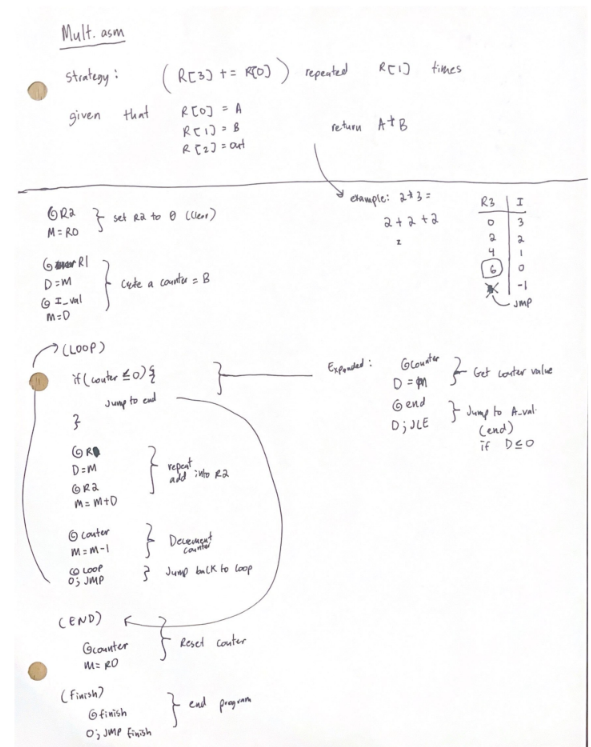 Mult. asm
Strategy: (R[3] += R[0]) repeated R[1] times
given that R[0] = A
R[1] = B
R[2] = out
return A * B
@R2
M=R0
} set R2 to 0 (clear)
@R1
D=M
@I_val
M=D
} create a counter = B
example: 2*3 =
2+2+2
R3 I
0 3
2 2
4 1
6 0
-1
JMP
(LOOP)
if (counter ≤ 0) {
Jump to end
}
Expanded: @counter
D = M
} Get counter value
@end
D;JLE
} Jump to A_val
(end)
if D≤0
@R
D=M
@R2
M=M+D
} repeat
add into R2
@counter
M=M-1
} Decrement
counter
@LOOP
0; JMP
} Jump back to loop
(END)
@counter
M=R0
} Reset counter
(Finish)
@finish
0; JMP finish
} end program